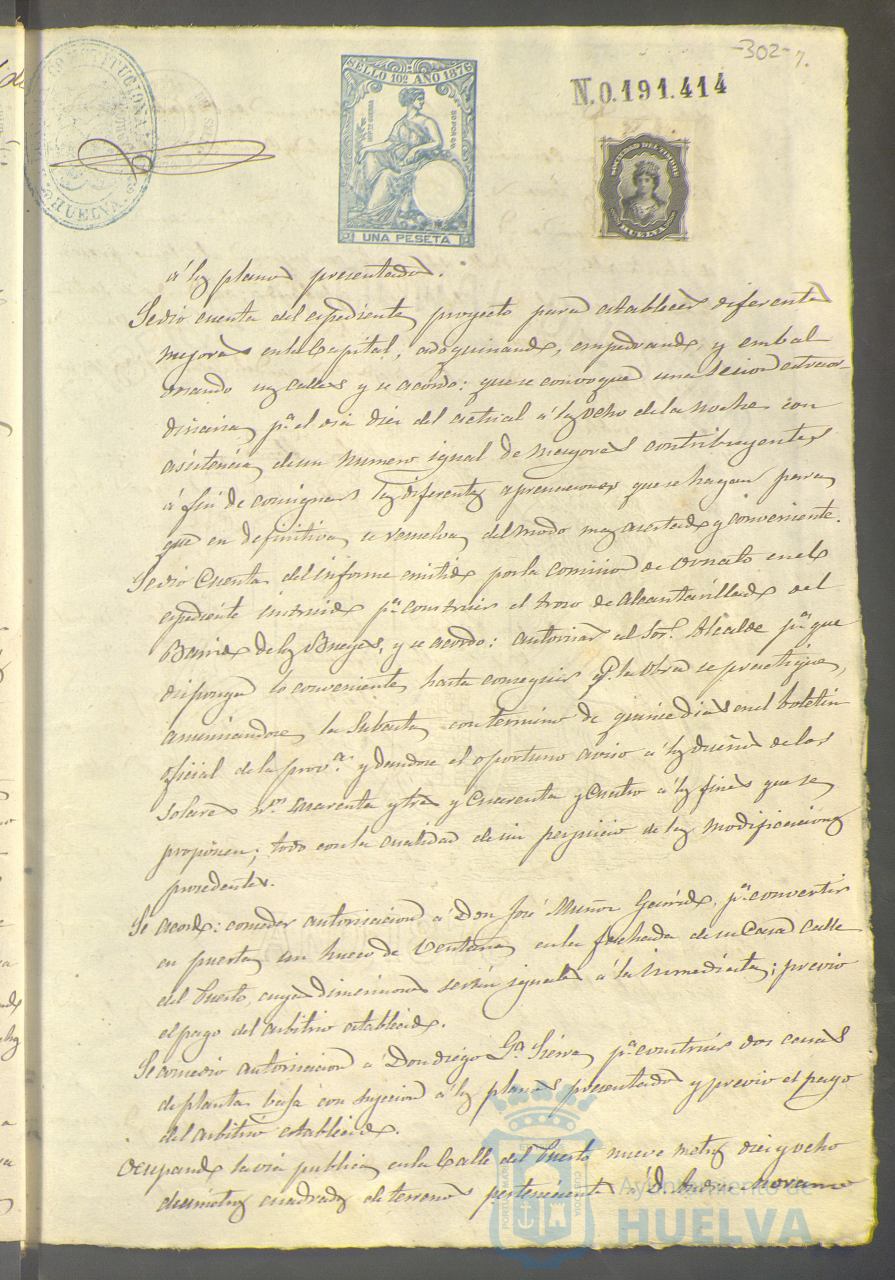 -302- 7.
SELLO 10º AÑO 1876
N.0.191.414
SOCIEDAD DEL TIMBRE
HUELVA
HUELVA
UNA PESETA
á los planos presentados.
Se dió cuenta del espediente, proyecto para establecer diferentes
mejoras en la Capital, adoquinando, empedrando, y embal-
dosando sus calles y se acordó: que se convoque una sesion estraor-
dinaria pª el dia diez del actual á las ocho de la noche con
asistencia de un numero igual de mayores contribuyentes
á fin de consignar las diferentes apreciaciones que se hagan para
que en definitiva se resuelva del modo mas acertado y conveniente.
Se dió Cuenta del informe emitido por la comision de Ornato en el
espediente instruido pª construir el trozo de Alcantarillado del
Barrio de los Bueyes, y se acordó: autorizar al Sor. Alcalde pª que
disponga lo conveniente hasta conseguir q. la Obra se practique,
anunciandose la Subasta con termino de quince dias en el boletin
oficial de la provª y dandose el oportuno aviso á los dueños de los
solares nos. cuarenta y tres y Cuarenta y Cuatro á los fines que se
proponen; todo con la cualidad de sin perjuicio de las modificaciones
procedentes.
Se acordó: conceder autorizacion á Don José Muñoz Garrido, pª convertir
en puerta un hueco de Ventana en la fachada de su Casa calle
del Puerto, cuyas dimensiones serán iguales á la inmediata; previo
el pago del arbitrio establecido.
Se concedió autorizacion á Don diego Gª Sierra, pª construir dos casas
de planta baja con sugecion á los planos presentados y previo el pago
del arbitrio establecido.
Ocupando la via publica en la Calle del Puerto nueve metros diez y ocho
decimetros cuadrados de terreno perteneciente á D.
Ayuntamiento de
HUELVA